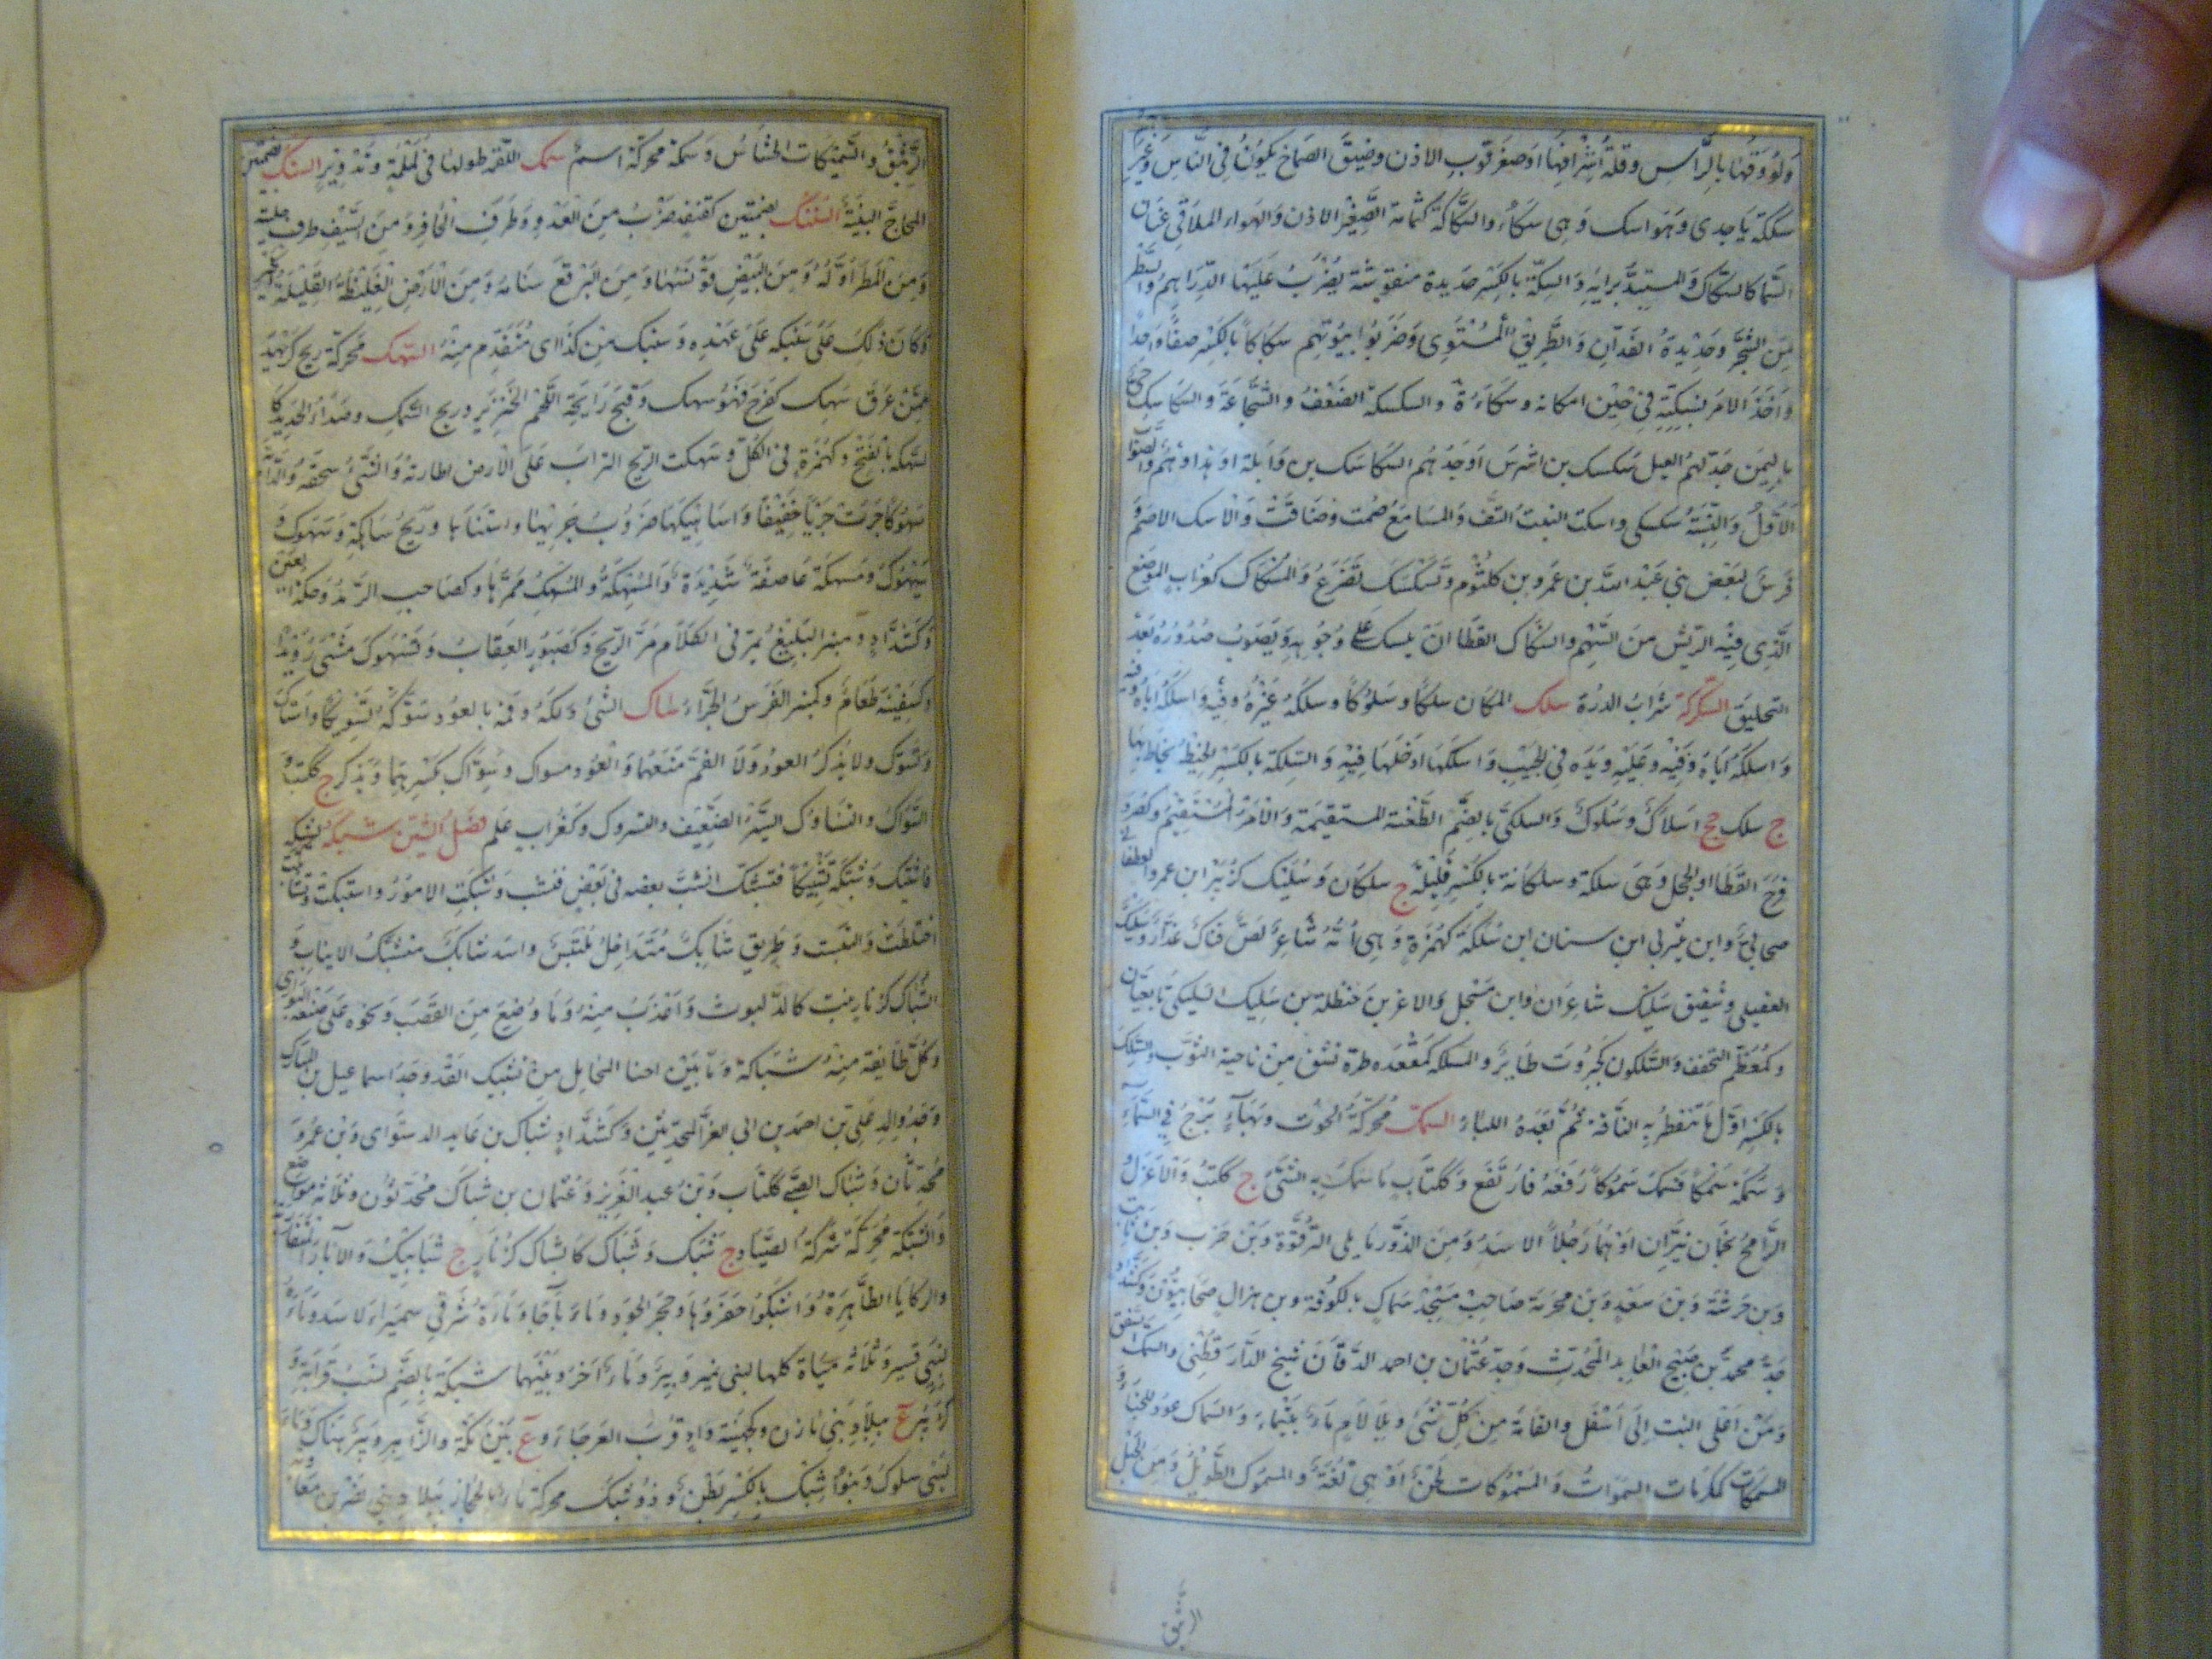 ولزوقها بالراس وقلة اشرافها او صغر قوب الاذن وضيق الصماخ يكون في الناس وغيرهم
سككت يا جدى وهو اسك وهى سكاء والسكاكة كثمامة الصغير الاذن والهواء الملاقى عنان
السماء كالسكاك والمستبد برايه والسكة بالكسر حديدة منقوشة يضرب عليها الدراهم والسطر
من الشجر وحديدة الفدان والطريق المستوى وضربوا بيوتهم سكاكا بالكسر صفا واحدا
واخذ الامر بسكته فى حين امكانه وسكاءة والسكسكة الضعف والشجاعة والسكاسك حى
باليمن جدهم القيل سكسك بن اشرس او جدهم السكاسك بن وابلة او هذا وهم والصواب
الاول والنسبة سكسكى واستكت النبت التف والمسامع صمت وضاقت والاسك الاصم و
فرس لبعض بنى عبد الله بن عمرو بن كلثوم وتسكسك تضرع والسكاك كغراب الموضع
الذى فيه الريش من السهم والسكاك القطا ان يسك على وجوبه ويصوب صدوره بعد
التحليق السكركة شراب الذرة سلك المكان سلكا وسلوكا وسلكه غيره وفيه واسلكه اياه وفيه
واسلكه اياه وفيه وعليه ويده فى الجيب واسلكها ادخلها فيه والسلكة بالكسر الخيط يخاط بها
ج سلك جج اسلاك وسلوك والسلكى بالضم الطعنة المستقيمة والامر المستقيم وكصرد
فرخ القطا او الحجل وهى سلكة وسلكانة بالكسر قليلة ج سلكان وسليك كزبير ابن عمرو الغطفانى
صحابى وابن يثربى ابن سنان ابن سلكة كهمزة وهى امه شاعر لص فتاك عداء وسليك
العقيلى وشقيق سليك شاعران وابن مسحل والاغر بن حنظلة بن سليك السليكى تابعيان
وكمعظم النحيف والسلكوت كجبروت طاير والمسلكة كمقعدة طرة تشق من ناحية الثوب والسلك
بالكسر اول ما تتفطر به الناقة ثم بعده اللبا السمك محركة الحوت وبهاء برج فى السماء
وسمكه سمكا فسمك سموكا رفعه فارتفع وككتاب ما سمك به الشىء ج ككتب والاعزل و
الرامح نجمان نيران او هما رجلا الاسد ومن الزور ما يلى الترقوة وبن حرب وبن ثابت
وبن خرشة وبن سعد وبن مخرمة صاحب مسجد سماك بالكوفة وبن هزال صحابيون وكشداد
جد محمد بن صبيح العابد المحدث وجد عثمان بن احمد الدقاق شيخ الدارقطنى والسمك السقف
ومن اعلى البيت الى اسفله والقامة من كل شىء وبلا لام ماء بتيماء والسماك عود للخباء و
المسمكات كمكرمات السموات والمسموكات لحن او هى لغة والمسموك الطويل ومن الخيل
الوثيق
الوثيق والسميكات الخناس وسمكة محركة اسم سمك اللقمة طولها فى ململة وتدوير السنك بضمتين
المحاج البينة السنبك بضمتين كقنفذ ضرب من العدو وطرف الحافر ومن السيف طرف حليته
ومن المطر اوله ومن البيض قونسها ومن البرقع شبامه ومن الارض الغليظة القليلة الخير
وكان ذلك على سنبكه على عهده وسنبك من كذا اى متقدم منه السهك محركة ريح كريهة
ممن عرق سهك كفرح فهو سهك وقبح رايحة اللحم الخنز وريح السمك وصداء الحديد كا
لسهكة بالفتح وكهمزة فى الكل وسهكت الريح التراب على الارض اطارته والشىء سحقه والدابة
سهوكا جرت جريا خفيفا واساهيكها ضروب جريها واستنانها وريح ساهكة وسهوك و
سيهوك ومسهكة عاصفة شديدة والمسهكة والمسهك ممرها وكصاحب الرمد وحكة العين
وكشداد ومنبر البليغ يمر فى الكلام مر الريح وكصبور العقاب وتسهوك مشى رويدا
وكسفينة طعام وكمنبر الفرس الجراء ساك الشىء دلكه وفمه بالعود سوكه تسويكا واستاك
وتسوك ولا يذكر العود ولا الفم معهما والعود مسواك وسواك بكسرهما ويذكر ج ككتب و
السواك والتساوك السير الضعيف والتسروك وكغراب علم فصل الشين شبكه يشبكه
فاشتبك وشبكه تشبيكا فتشبك انشب بعضه فى بعض فنشب وشبكت الامور واشتبكت وتشابكت
اختلطت والتبست وطريق شابك متداخل ملتبس واسد شابك مشتبك الانياب و
الشباك كزنار نبت كالدلبوث واعذب منه وما وضع من القصب ونحوه على صنعة البوارى
وكل طايفة منه شباكة وما بين احناء المحامل من تشبيك القد وجد اسماعيل بن المبارك
وجد والد على بن احمد بن ابى العز المحدثين وكشداد شباك بن عايذ الدستواى وبن عمرو
محدثان وشباك الضبى ككتاب وبن عبد العزيز وعثمان بن شباك محدثون وثلاثة مواضع
والشبكة محركة شركة الصياد ج شبك وشباك كالشباك كزنار ج شبابيك والآبار المتقاربة
والركايا الظاهرة واشبكوا حفروها وجحر الجرذ وماء باجا وماءة شرقى سميراء لاسد وماءة
لبنى قشير وثلاثة مياه كلها لبنى نمير وبير وماء آخر وبينهما شبكة بالضم نسب قرابة و
كزبير ع ببلاد بنى مازن وكجهينة واد قرب العرجاء وع بين مكة والزاهر وبير هناك وماء
لبنى سلول وبنو شبك بالكسر بطن وذو شبك محركة ماء بالحجاز ببلاد بنى نصر بن معاوية